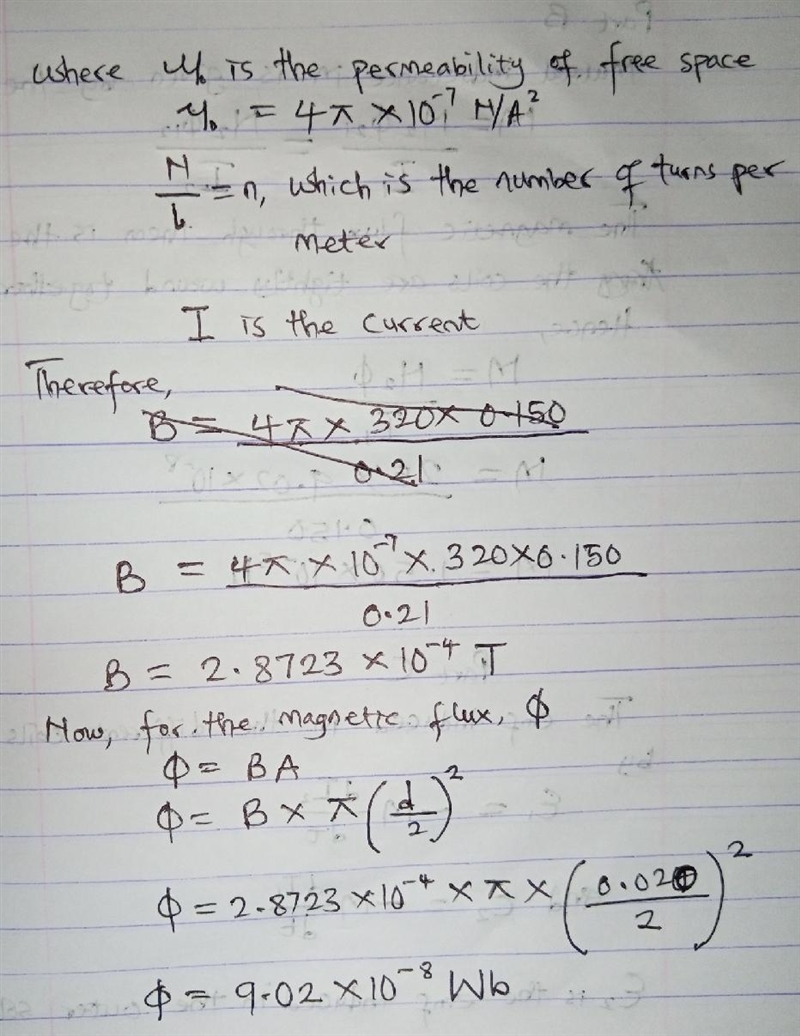 where μ₀ is the permeability of free space
μ₀ = 4π × 10⁻⁷ N/A²
N/L = n, which is the number of turns per
meter
I is the current
Therefore,
B = 4π × 320 × 0.150 / 0.21
B = 4π × 10⁻⁷ × 320 × 0.150 / 0.21
B = 2.8723 × 10⁻⁴ T
Now, for the magnetic flux, Φ
Φ = BA
Φ = B × π (d/2)²
Φ = 2.8723 × 10⁻⁴ × π × (0.020/2)²
Φ = 9.02 × 10⁻⁸ Wb